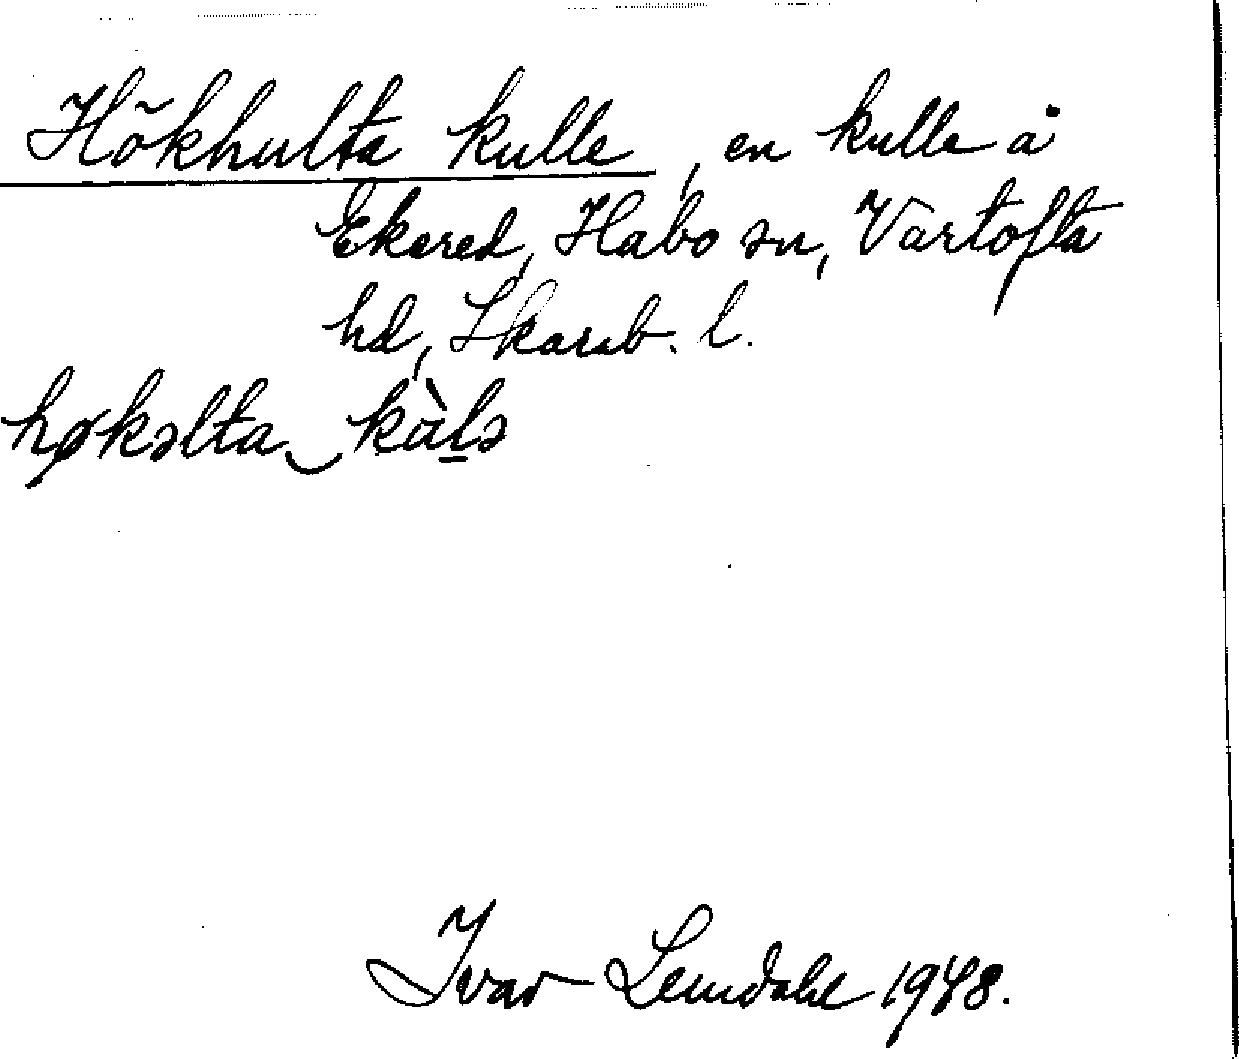 Hökhulta kulle, en kulle å
Ekered, Habo sn, Vartofta
hd, Skarab. l.
høkəlta‿kàl̲ə
Ivar Lundahl 1948.